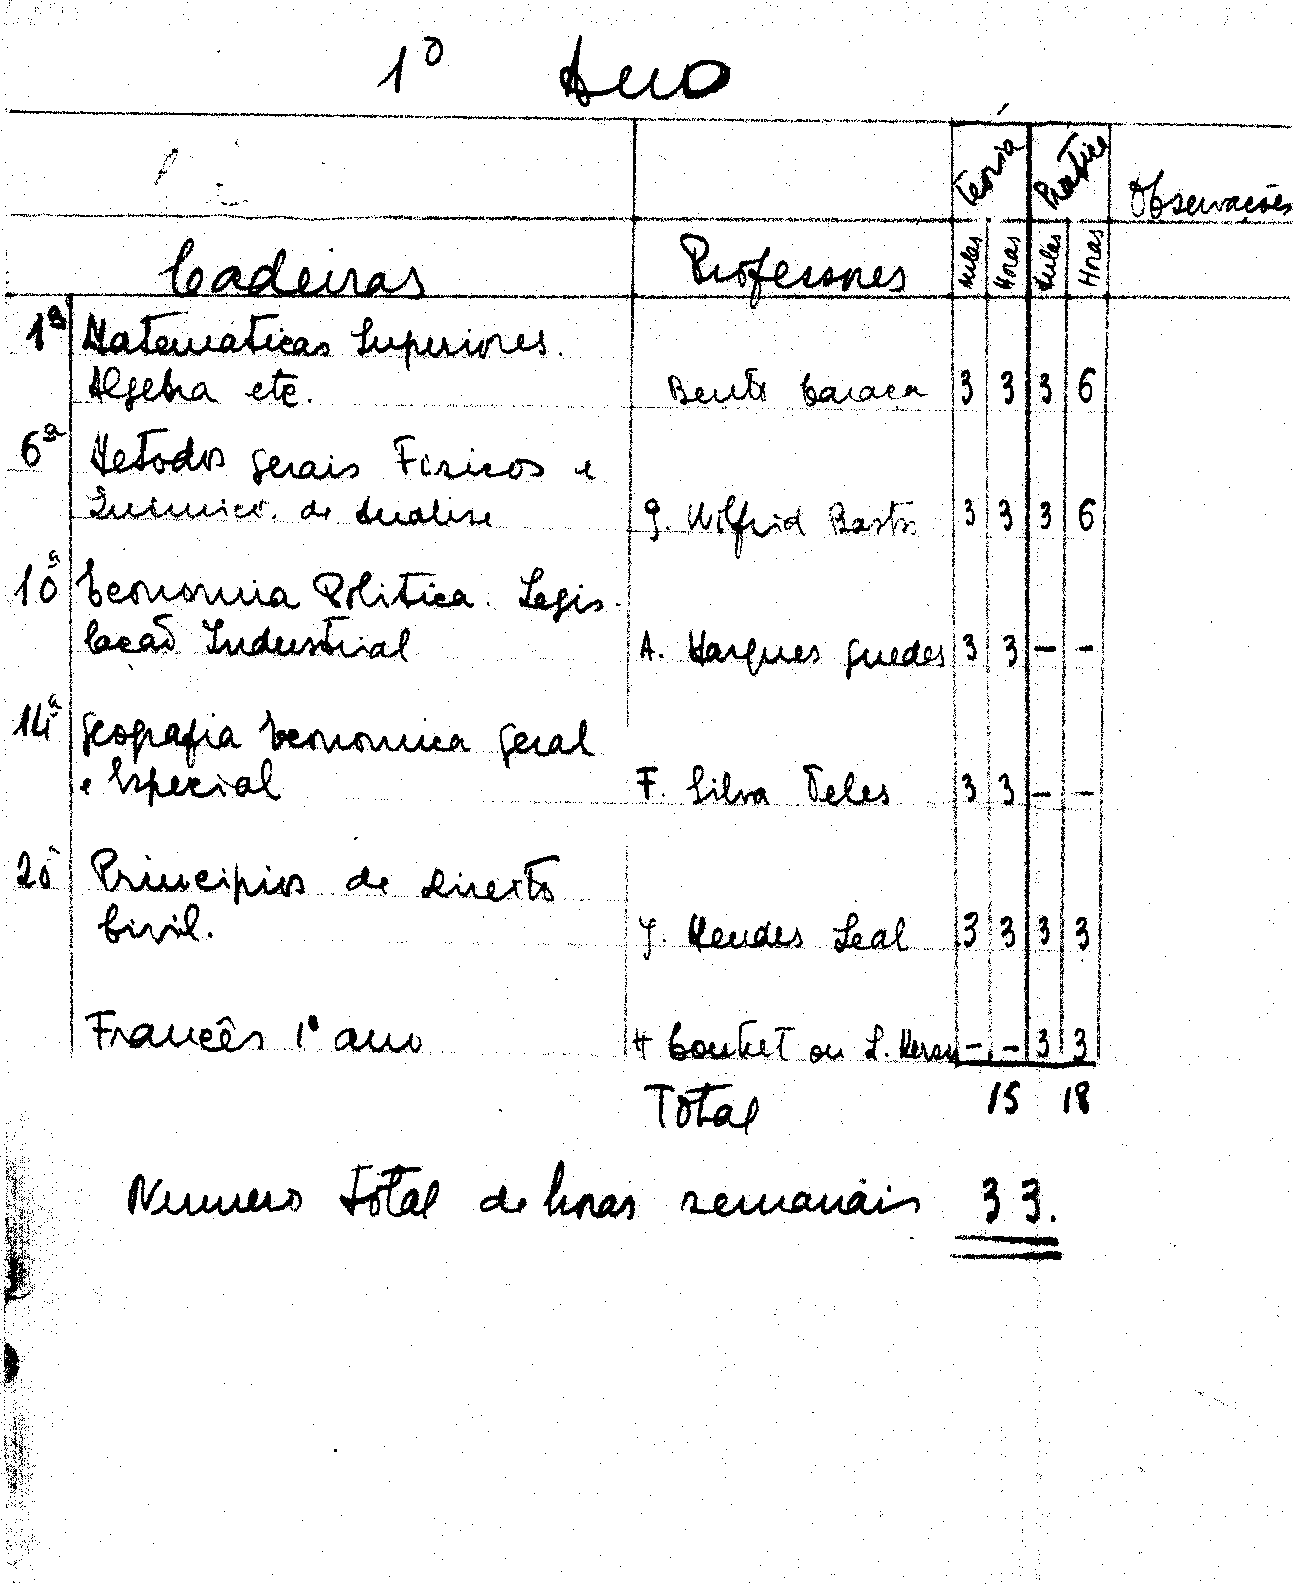 1º Ano
Teoria Pratica Observações
Cadeiras Professores Aulas Horas Aulas Horas
1ª Matematicas Superiores.
Algebra etc. Bento Caraça 3 3 3 6
6ª Metodos gerais Fisicos e
Quimico. de Analise g. Wilfrid Bastos 3 3 3 6
10ª Economia Politica. Legis-
lação Industrial A. Marques Guedes 3 3 - -
14ª Geografia Economica Geral
e Especial F. Silva Teles 3 3 - -
20ª Principios de Direito
Civil. J. Mendes Leal 3 3 3 3
Francês 1º ano H Goutet ou L. - - 3 3
Total 15 18
Numero total de horas semanáis 33.